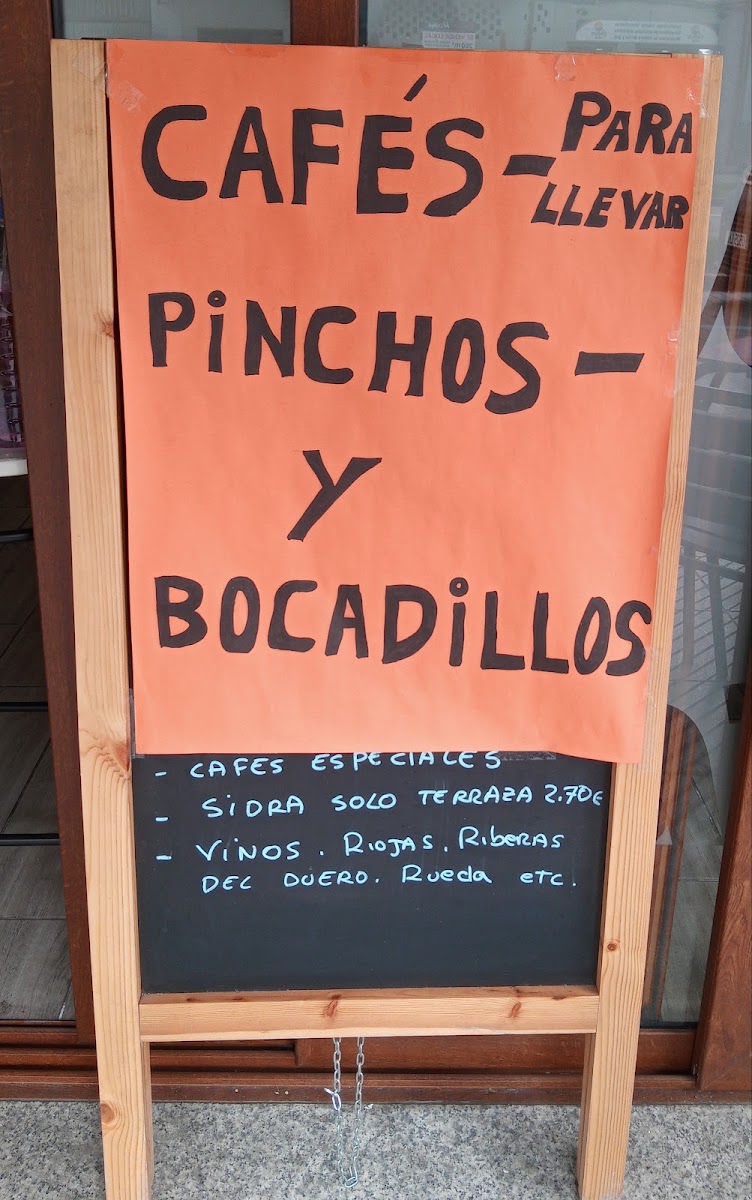 CAFÉS-
PARA
LLEVAR
PiNCHOS-
Y
BOCADiLLOS
- CAFES ESPECIALES
- SiDRA SOLO TERRAZA 2.70€
- ViNOS. RIOJAS. RiberAS
DEL DUERO. Rueda etc.